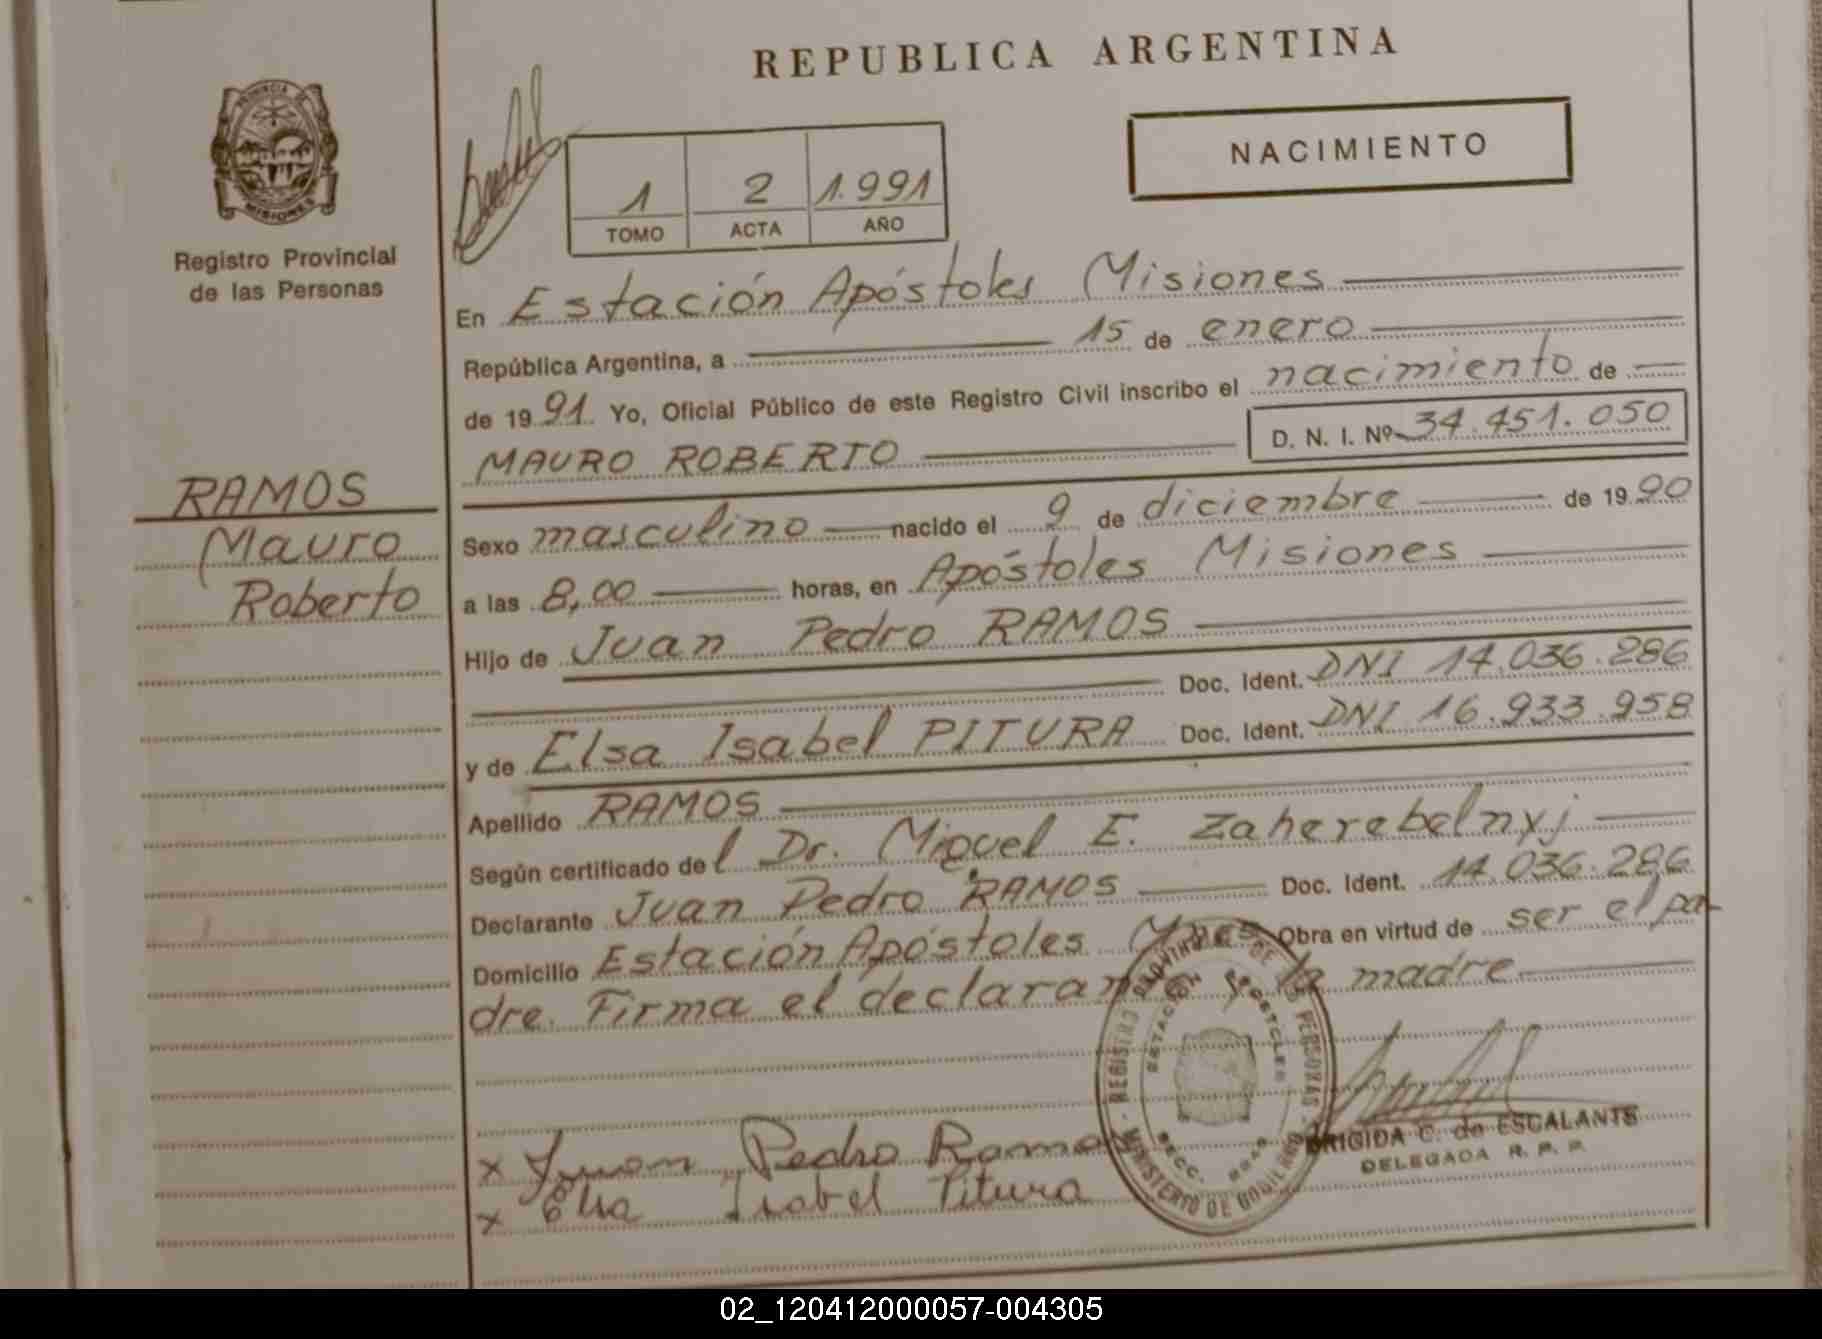 REPUBLICA ARGENTINA
NACIMIENTO
PROVINCIA DE
MISIONES
Registro Provincial
de las Personas
1 2 1.991
TOMO ACTA AÑO
En Estación Apóstoles Misiones
República Argentina, a 15 de enero
de 19 91. Yo, Oficial Público de este Registro Civil inscribo el nacimiento de
MAURO ROBERTO D. N. I. Nº 34.451.050
RAMOS
Mauro
Roberto
Sexo masculino nacido el 9 de diciembre de 19 90
a las 8,00 horas, en Apóstoles Misiones
Hijo de Juan Pedro RAMOS
Doc. Ident. DNI 14.036.286
y de Elsa Isabel PITURA Doc. Ident. DNI 16.933.958
Apellido RAMOS
Según certificado del Dr. Miguel E. Zaherebelnyj
Declarante Juan Pedro RAMOS Doc. Ident. 14.036.286
Domicilio Estación Apóstoles Mnes Obra en virtud de ser el pa-
dre. Firma el declarante y la madre
REGISTRO PROVINCIAL DE LAS PERSONAS
ESTACION APOSTOLES
SECC.
MINISTERIO DE GOBIERNO
x Juan Pedro Ramos
x Elsa Isabel Pitura
BRIGIDA C. de ESCALANTE
DELEGADA R. P. P.
02_120412000057-004305